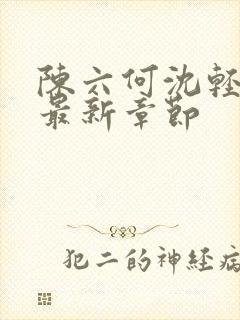 陳六何沈軽
最新章節
犯二的神経病